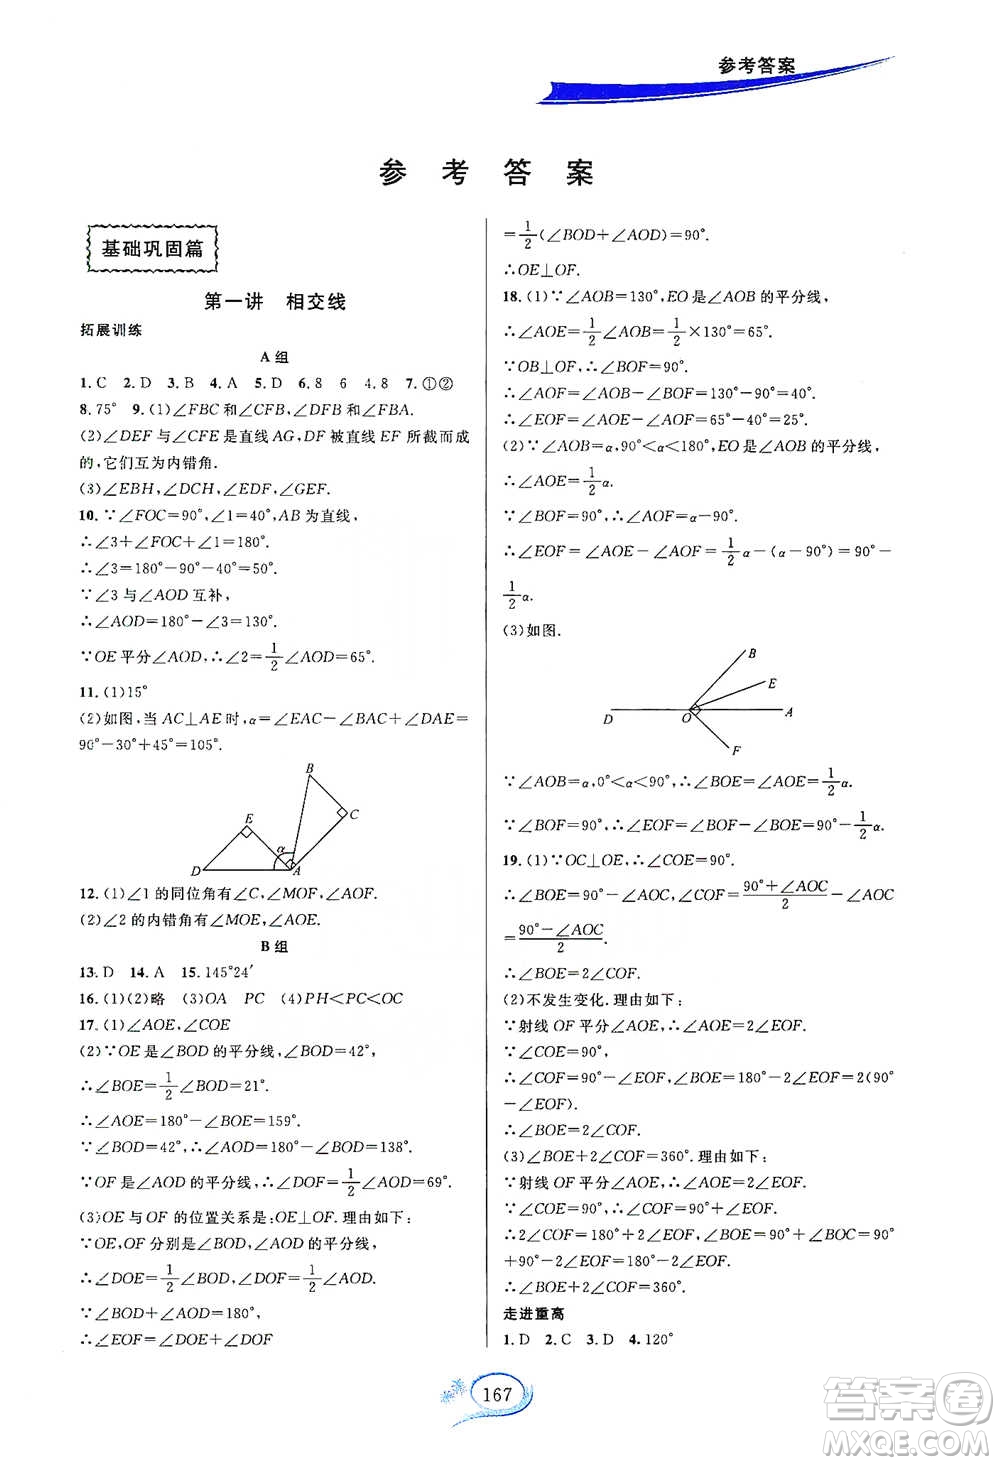 参考答案
参 考 答 案
基础巩固篇
第一讲 相交线
拓展训练
A 组
1. C 2. D 3. B 4. A 5. D 6. 8 6 4.8 7. ①②
8. 75° 9. (1)∠FBC和∠CFB,∠DFB和∠FBA.
(2)∠DEF与∠CFE是直线AG,DF被直线EF所截而成
的,它们互为内错角.
(3)∠EBH,∠DCH,∠EDF,∠GEF.
10. ∵∠FOC=90°,∠1=40°,AB为直线,
∴∠3+∠FOC+∠1=180°,
∴∠3=180°-90°-40°=50°.
∵∠3与∠AOD互补,
∴∠AOD=180°-∠3=130°.
∵OE平分∠AOD,∴∠2=1/2∠AOD=65°.
11. (1)15°
(2)如图,当AC⊥AE时,α=∠EAC-∠BAC+∠DAE=
90°-30°+45°=105°.
B
E
C
α
D
A
12. (1)∠1的同位角有∠C,∠MOF,∠AOF.
(2)∠2的内错角有∠MOE,∠AOE.
B 组
13. D 14. A 15. 145°24′
16. (1)(2)略 (3)OA PC (4)PH<PC<OC
17. (1)∠AOE,∠COE
(2)∵OE是∠BOD的平分线,∠BOD=42°,
∴∠BOE=1/2∠BOD=21°.
∴∠AOE=180°-∠BOE=159°.
∵∠BOD=42°,∴∠AOD=180°-∠BOD=138°.
∵OF是∠AOD的平分线,∴∠DOF=1/2∠AOD=69°.
(3)OE与OF的位置关系是:OE⊥OF.理由如下:
∵OE,OF分别是∠BOD,∠AOD的平分线,
∴∠DOE=1/2∠BOD,∠DOF=1/2∠AOD.
∵∠BOD+∠AOD=180°,
∴∠EOF=∠DOE+∠DOF
=1/2(∠BOD+∠AOD)=90°.
∴OE⊥OF.
18. (1)∵∠AOB=130°,EO是∠AOB的平分线,
∴∠AOE=1/2∠AOB=1/2×130°=65°.
∵OB⊥OF,∴∠BOF=90°.
∴∠AOF=∠AOB-∠BOF=130°-90°=40°.
∴∠EOF=∠AOE-∠AOF=65°-40°=25°.
(2)∵∠AOB=α,90°<α<180°,EO是∠AOB的平分线,
∴∠AOE=1/2α.
∵∠BOF=90°,∴∠AOF=α-90°.
∴∠EOF=∠AOE-∠AOF=1/2α-(α-90°)=90°-
1/2α.
(3)如图.
B
E
D
O
A
F
∵∠AOB=α,0°<α<90°,∴∠BOE=∠AOE=1/2α.
∵∠BOF=90°,∴∠EOF=∠BOF-∠BOE=90°-1/2α.
19. (1)∵OC⊥OE,∴∠COE=90°.
∴∠BOE=90°-∠AOC,∠COF=(90°+∠AOC)/2-∠AOC
=(90°-∠AOC)/2.
∴∠BOE=2∠COF.
(2)不发生变化.理由如下:
∵射线OF平分∠AOE,∴∠AOE=2∠EOF.
∵∠COE=90°,
∴∠COF=90°-∠EOF,∠BOE=180°-2∠EOF=2(90°
-∠EOF).
∴∠BOE=2∠COF.
(3)∠BOE+2∠COF=360°.理由如下:
∵射线OF平分∠AOE,∴∠AOE=2∠EOF.
∵∠COE=90°,∴∠COF=90°+∠EOF.
∴2∠COF=180°+2∠EOF,∠BOE=∠BOC+90°=90°
+90°-2∠EOF=180°-2∠EOF.
∴∠BOE+2∠COF=360°.
走进重高
1. D 2. C 3. D 4. 120°
167
答案圈
MXQE.COM